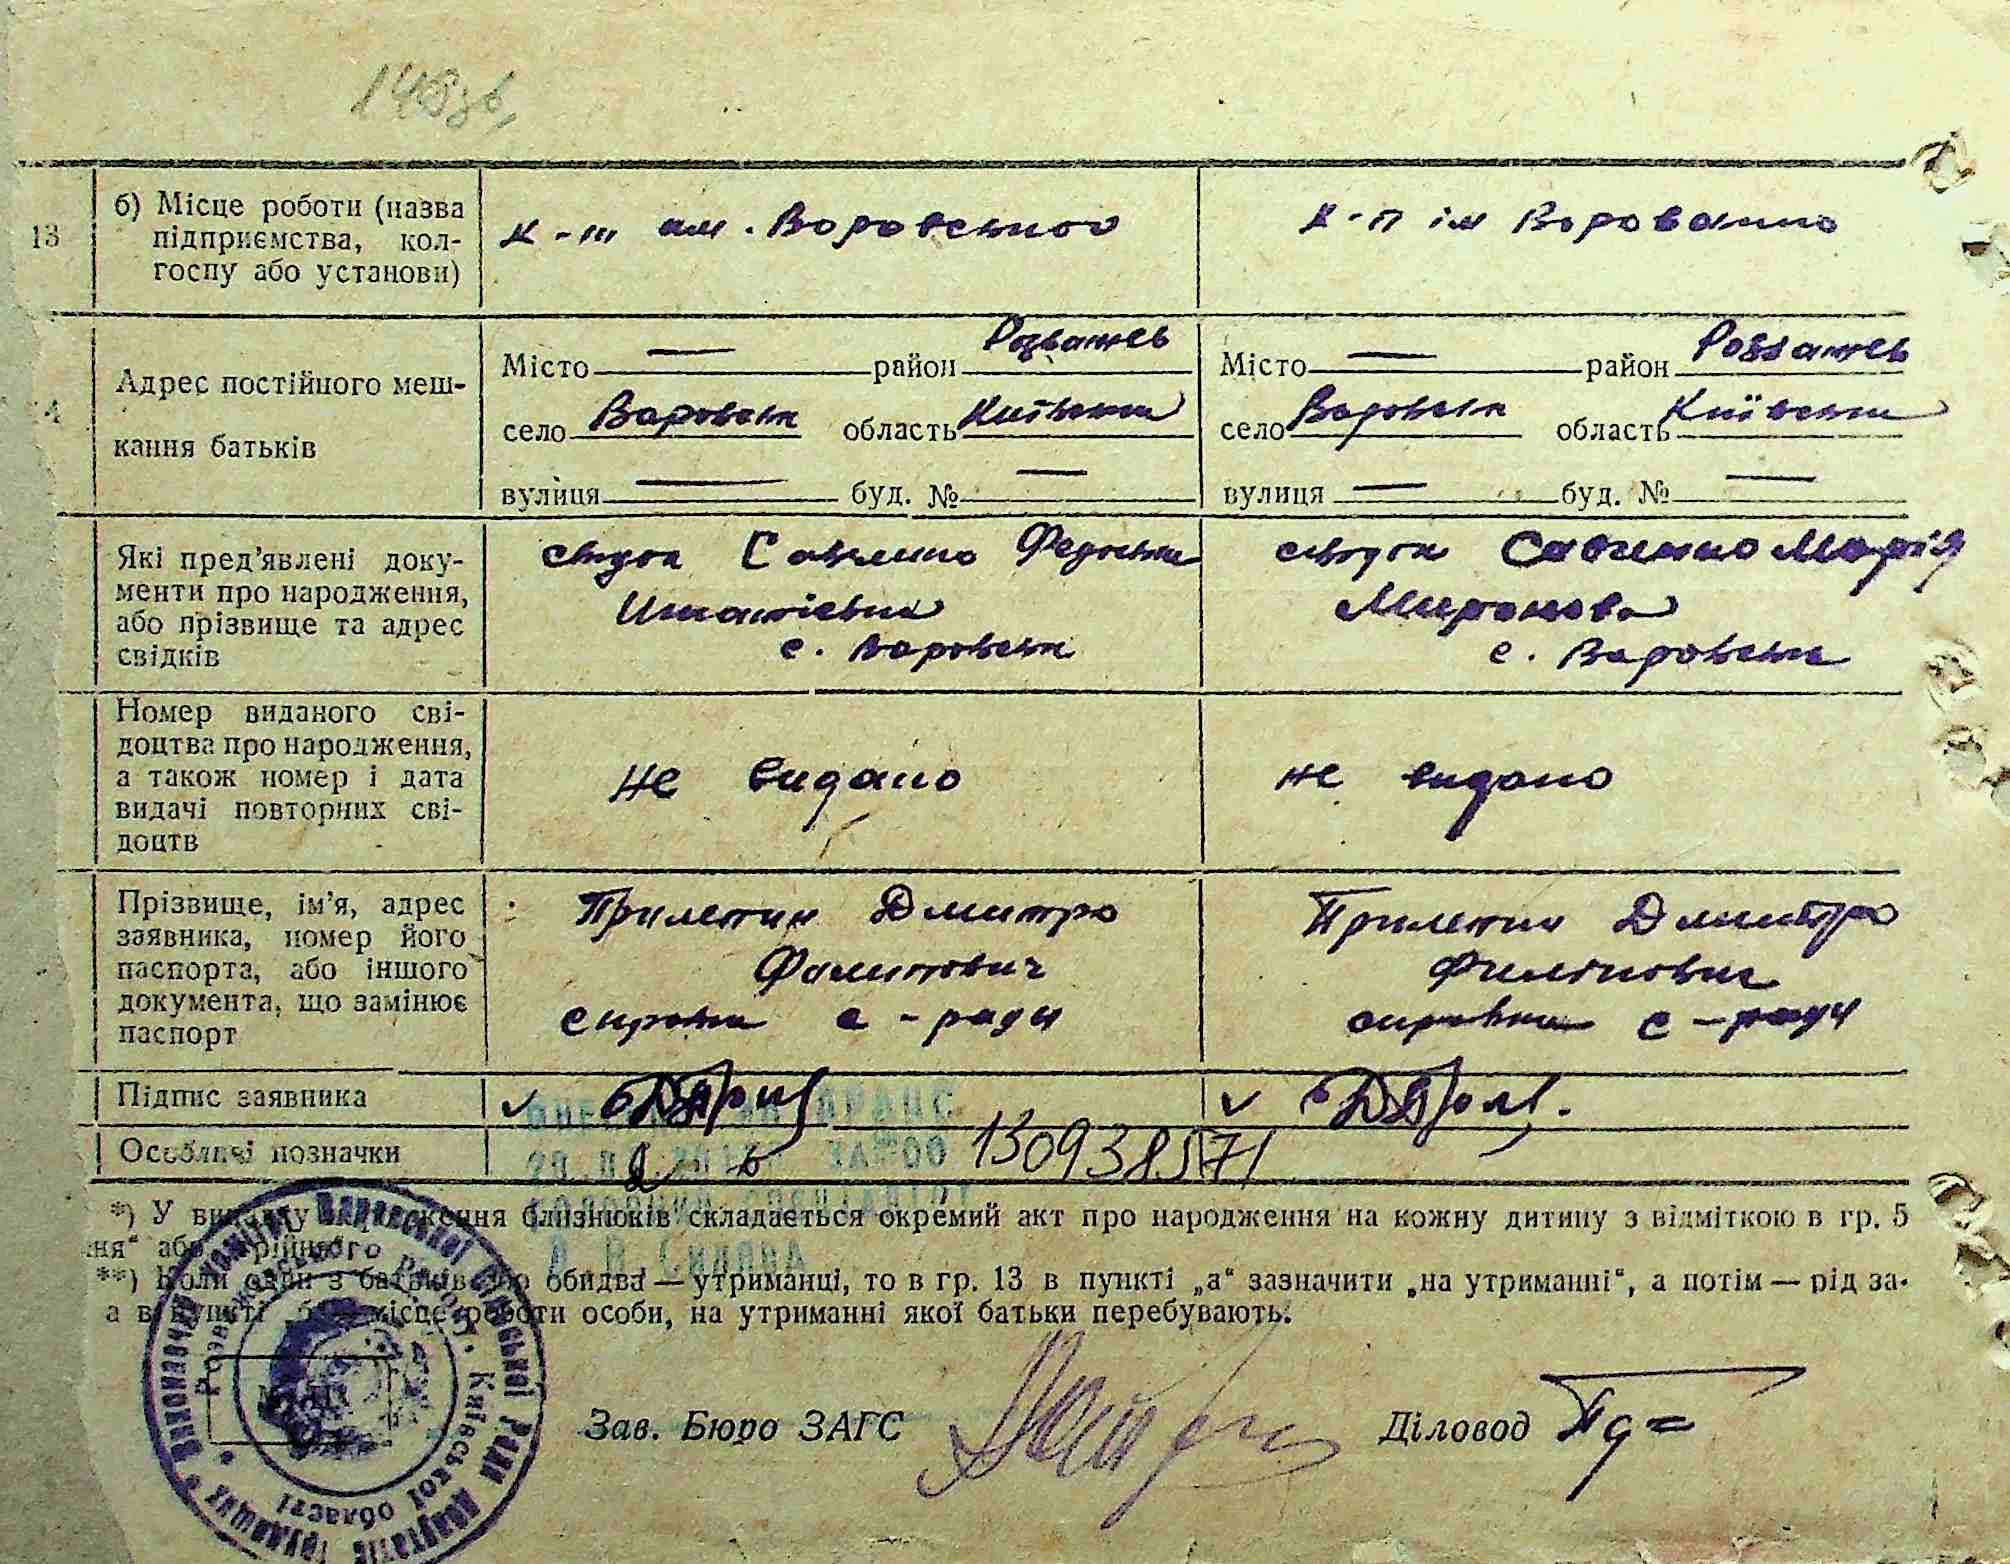 148зв.
13
б) Місце роботи (назва
підприємства, кол-
госпу або установи)
к-п им. Воровського
к-п ім Воровского
4
Адрес постійного меш-
кання батьків
Місто — район Розважев
село Варовськ область Київська
вулиця — буд. № —
Місто — район Розважев
село Варовськ область Київська
вулиця — буд. № —
Які пред'явлені доку-
менти про народження,
або прізвище та адрес
свідків
свідок Савченко
с. Варовськ
свідок Савченко Марія
Миронова
с. Варовськ
Номер виданого сві-
доцтва про народження,
а також номер і дата
видачі повторних сві-
доцтв
не видано
не видано
Прізвище, ім'я, адрес
заявника, номер його
паспорта, або іншого
документа, що замінює
паспорт
Прилепин Дмитро
с-ради
Прилепин Дмитро
Филіпович
с-ради
Підпис заявника
Особливі позначки
130938571
*) У випадку народження близнюків складається окремий акт про народження на кожну дитину з відміткою в гр. 5
ня“ або трійнього
**) Коли один з батьків або обидва — утриманці, то в гр. 13 в пункті „а“ зазначити „на утриманні“, а потім — рід за-
а в пункті „б“ місце роботи особи, на утриманні якої батьки перебувають.
Зав. Бюро ЗАГС
Діловод
Виконавчий комітет Варовської сільської Ради депутатів трудящих
району Київської області